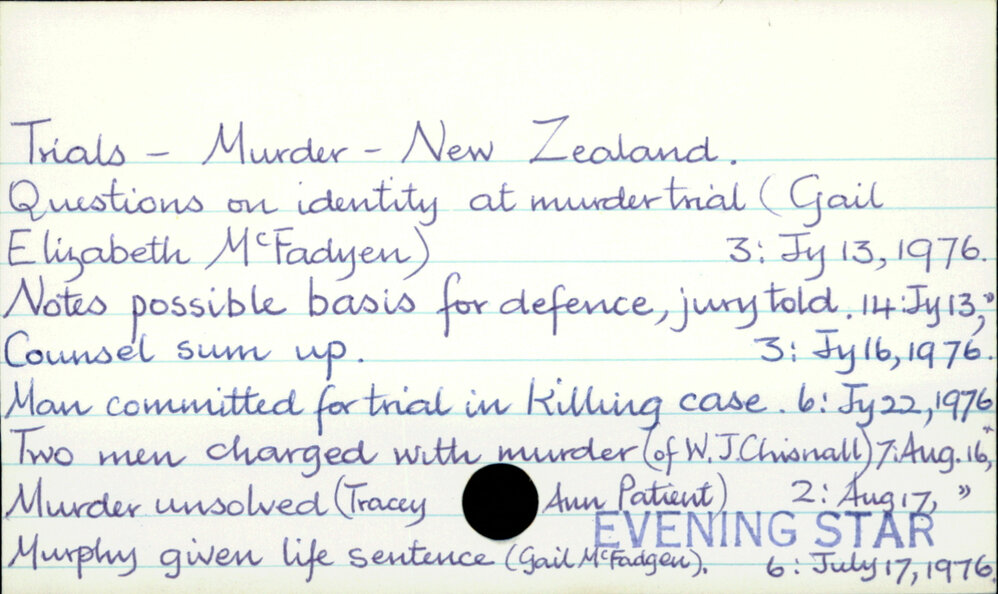 Trials - Murder - New Zealand.
Questions on identity at murder trial (Gail
Elizabeth McFadyen) 3: Jy 13, 1976.
Notes possible basis for defence, jury told. 14: Jy 13, "
Counsel sum up. 3: Jy 16, 1976.
Man committed for trial in killing case. 6: Jy 22, 1976
Two men charged with murder (of W. J. Chisnall) 7: Aug. 16, "
Murder unsolved (Tracey Ann Patient) 2: Aug 17, "
EVENING STAR
Murphy given life sentence (Gail McFadgen). 6: July 17, 1976.